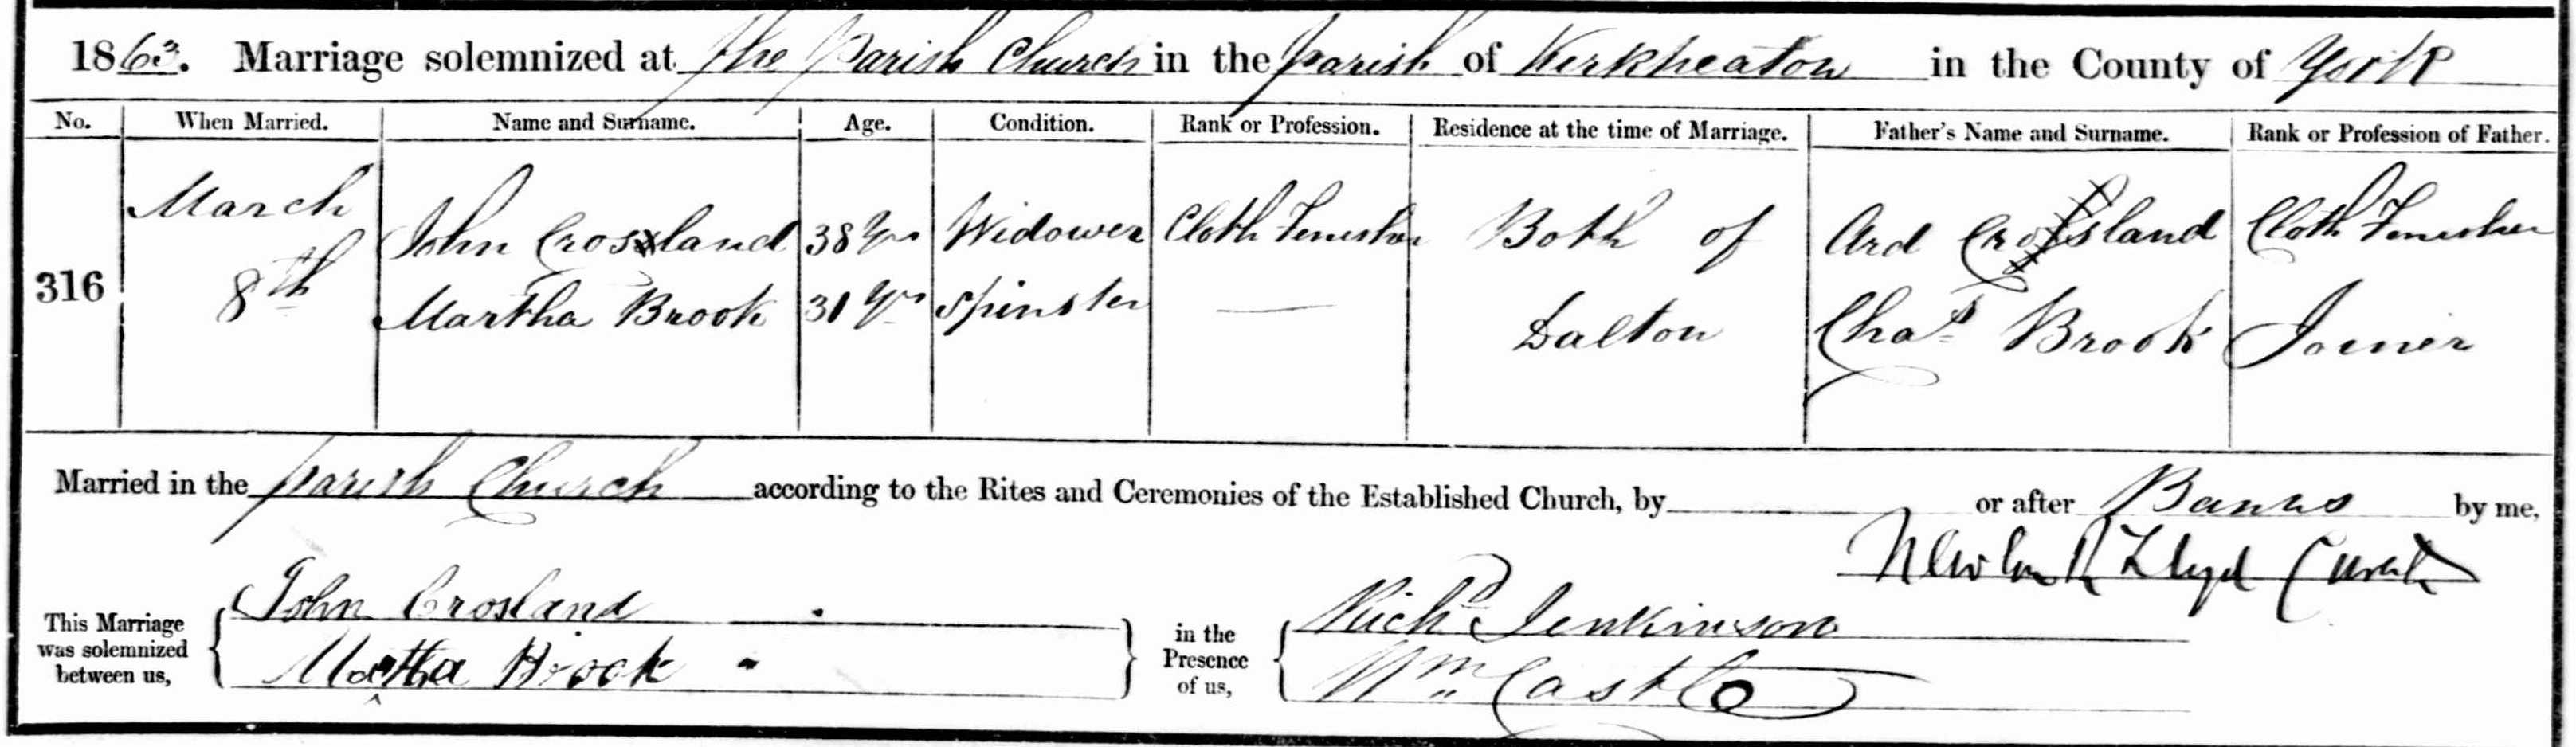 1863. Marriage solemnized at the Parish Church in the parish of Kirkheaton in the County of York
No. When Married. Name and Surname. Age. Condition. Rank or Profession. Residence at the time of Marriage. Father's Name and Surname. Rank or Profession of Father.
316 March 8th
John Crosland 38 Yrs Widower Cloth Finisher Both of Ard Crosland Cloth Finisher
Martha Brook 31 Yrs Spinster — Dalton Chas Brook Joiner
Married in the parish Church according to the Rites and Ceremonies of the Established Church, by or after Banns by me,
Lloyd Curate
This Marriage was solemnized between us, John Crosland
Martha Brook
in the Presence of us, Richd Jenkinson
Wm Castle